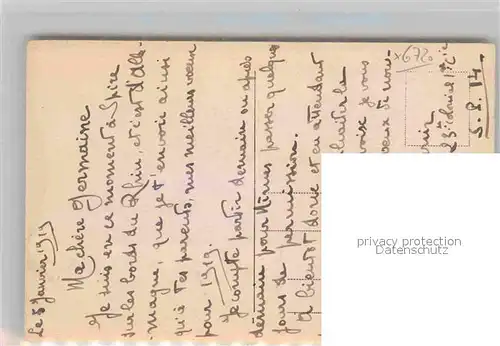 Le 5 Janvier 1919
Ma chère Germaine
Je suis en ce moment à Spire
sur les bords du Rhin, et c'est d'Alle-
magne, que je t'envoie ainsi
qu'à tes parents, mes meilleurs vœux
pour 1919.
Je compte partir demain ou après
demain pour Nîmes passer quelques
jours de permission.
A bientôt donc et en attendant
je vous
vœux de nou-
S. P. 14.
x672
privacy protection
Datenschutz